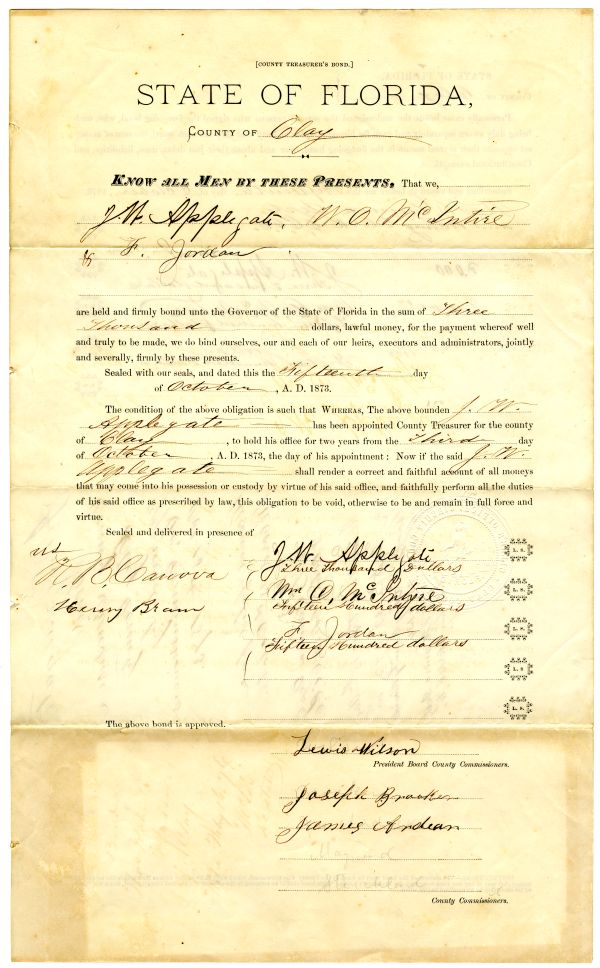 [COUNTY TREASURER'S BOND.]
STATE OF FLORIDA,
COUNTY OF Clay
KNOW ALL MEN BY THESE PRESENTS, That we,
J. W. Applegate, W. O. McIntire
& F. Jordan
are held and firmly bound unto the Governor of the State of Florida in the sum of Three
Thousand dollars, lawful money, for the payment whereof well
and truly to be made, we do bind ourselves, our and each of our heirs, executors and administrators, jointly
and severally, firmly by these presents.
Sealed with our seals, and dated this the Fifteenth day
of October, A. D. 1873.
The condition of the above obligation is such that WHEREAS, The above bounden J. W.
Applegate has been appointed County Treasurer for the county
of Clay, to hold his office for two years from the Third day
of October, A. D. 1873, the day of his appointment: Now if the said J. W.
Applegate shall render a correct and faithful account of all moneys
that may come into his possession or custody by virtue of his said office, and faithfully perform all the duties
of his said office as prescribed by law, this obligation to be void, otherwise to be and remain in full force and
virtue.
Sealed and delivered in presence of
us
J. W. Applegate L. S.
Three Thousand Dollars
R. B. Canova
Wm O. McIntire L. S.
Fifteen Hundred dollars
Henry Bram
F. Jordan L. S.
Fifteen Hundred dollars
L. S.
L. S.
The above bond is approved.
Lewis Wilson
President Board County Commissioners.
Joseph Brooker
James Andean
County Commissioners.